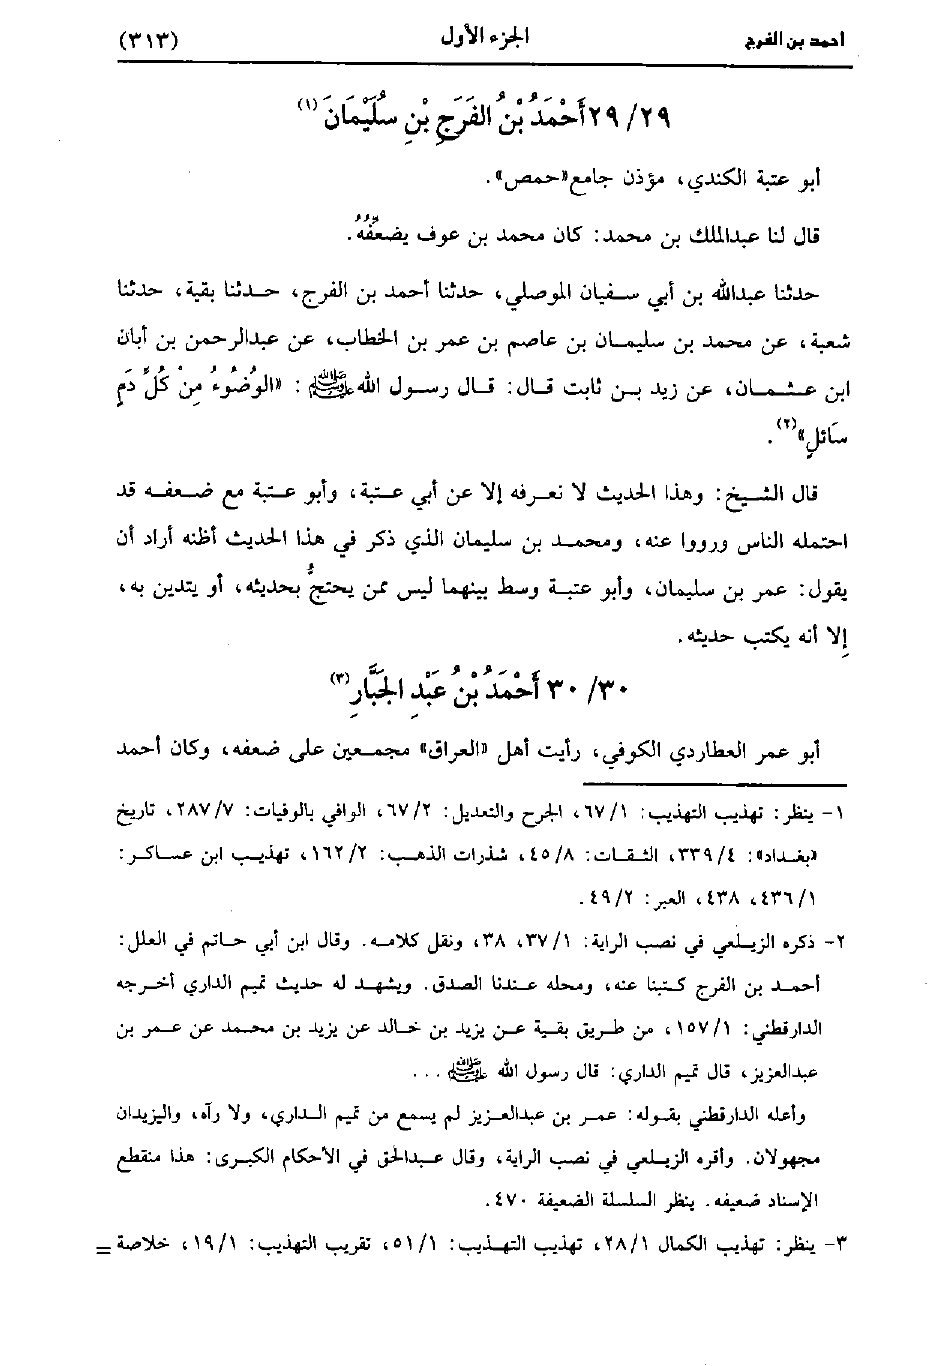 احمد بن الفرج الجزء الأول (٣١٣)
٢٩/٢٩ أَحْمَدُ بْنُ الفَرَجِ بْنِ سُلَيْمَانَ(١)
أبو عتبة الكندي، مؤذن جامع «حمص».
قال لنا عبدالملك بن محمد: كان محمد بن عوف يضعفُه.
حدثنا عبدالله بن أبي سفيان الموصلي، حدثنا أحمد بن الفرج، حدثنا بقية، حدثنا
شعبة، عن محمد بن سليمان بن عاصم بن عمر بن الخطاب، عن عبدالرحمن بن أبان
ابن عثمان، عن زيد بن ثابت قال: قال رسول الله ﷺ: «الوُضُوءُ مِنْ كُلِّ دَمٍ
سَائلٍ»(٢).
قال الشيخ: وهذا الحديث لا نعرفه إلا عن أبي عتبة، وأبو عتبة مع ضعفه قد
احتمله الناس ورووا عنه، ومحمد بن سليمان الذي ذكر في هذا الحديث أظنه أراد أن
يقول: عمر بن سليمان، وأبو عتبة وسط بينهما ليس ممن يحتجُّ بحديثه، أو يتدين به،
إِلا أنه يكتب حديثه.
٣٠/٣٠ أَحْمَدُ بْنُ عَبْدِ الجَبَّارِ(٣)
أبو عمر العطاردي الكوفي، رأيت أهل «العراق» مجمعين على ضعفه، وكان أحمد
١- ينظر: تهذيب التهذيب: ٦٧/١، الجرح والتعديل: ٦٧/٢، الوافي بالوفيات: ٢٨٧/٧، تاريخ
«بغداد»: ٣٣٩/٤، الثقات: ٤٥/٨، شذرات الذهب: ١٦٢/٢، تهذيب ابن عساكر:
٤٣٦/١، ٤٣٨، العبر: ٤٩/٢.
٢- ذكره الزيلعي في نصب الراية: ٣٧/١، ٣٨، ونقل كلامه. وقال ابن أبي حاتم في العلل:
أحمد بن الفرج كتبنا عنه، ومحله عندنا الصدق. ويشهد له حديث تميم الداري أخرجه
الدارقطني: ١٥٧/١، من طريق بقية عن يزيد بن خالد عن يزيد بن محمد عن عمر بن
عبدالعزيز، قال تميم الداري: قال رسول الله ﷺ ...
وأعله الدارقطني بقوله: عمر بن عبدالعزيز لم يسمع من تميم الداري، ولا رآه، واليزيدان
مجهولان. وأقره الزيلعي في نصب الراية، وقال عبدالحق في الأحكام الكبرى: هذا منقطع
الإسناد ضعيفه. ينظر السلسلة الضعيفة ٤٧٠.
٣- ينظر: تهذيب الكمال ٢٨/١، تهذيب التهذيب: ٥١/١، تقريب التهذيب: ١٩/١، خلاصة =